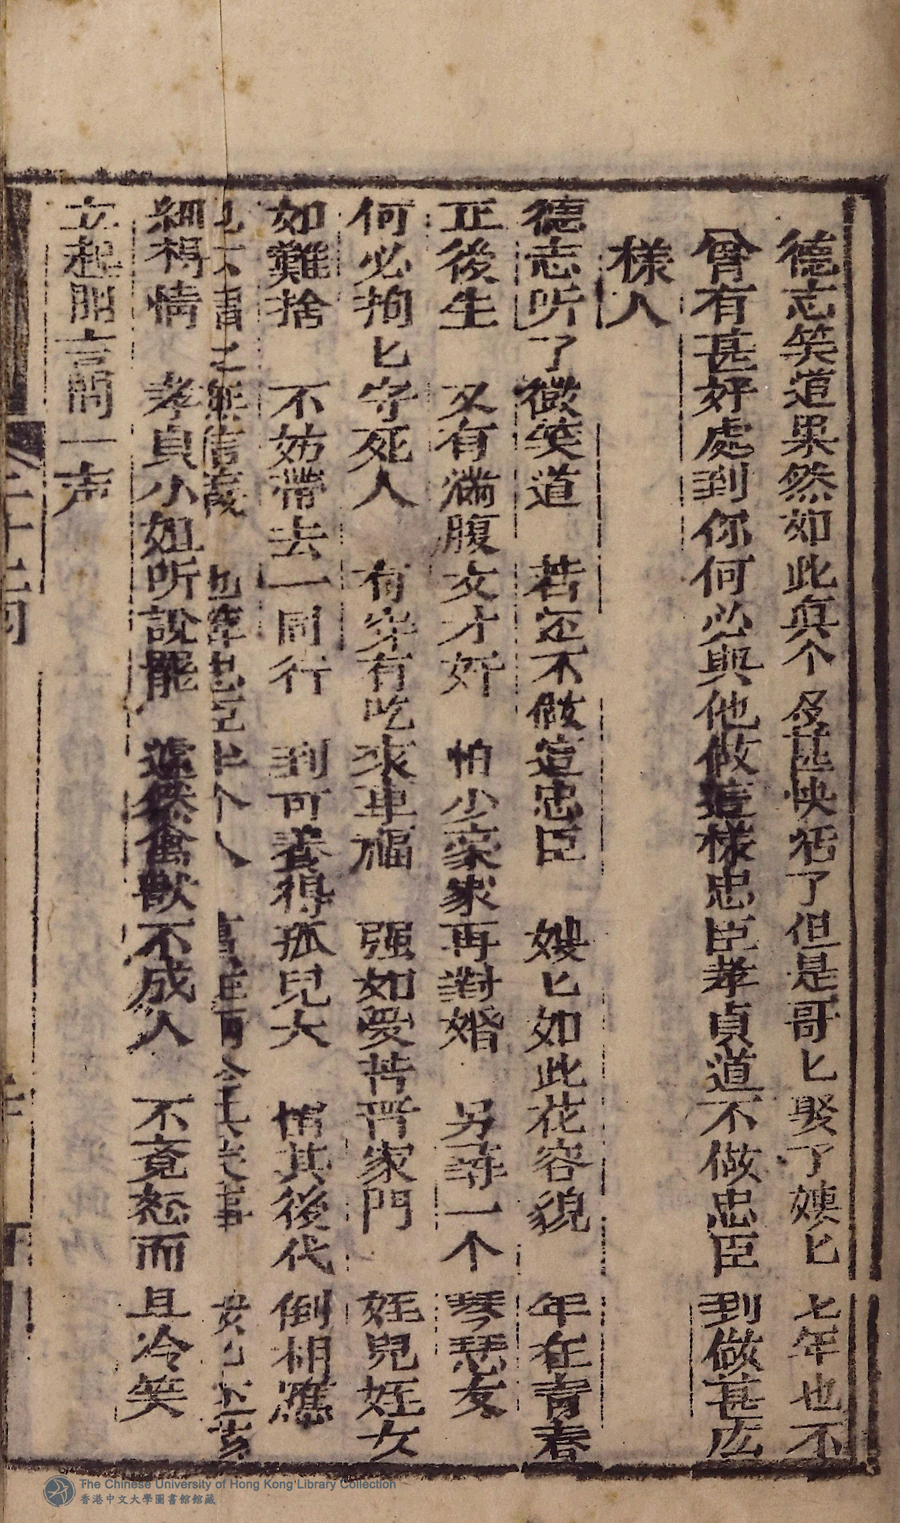 德志笑道果然如此真个没甚快活了但是哥匕娶了嫂匕七年也不
曾有甚好處到你何必與他做這樣忠臣孝貞道不做忠臣到做甚庅
樣人
德志听了微笑道 若还不做這忠臣 嫂匕如此花容貌 年在青春
正後生 又有滿腹文才好 怕少豪家再對婚 另尋一个 琴瑟友
何必拘匕守死人 有穿有吃 福 强如受苦晋家門 姪兒姪女
如難捨 不妨帶去一同行 到可養得孤兒大 其後代 倒相應
之無信義 也算忠臣半个人
細相情 孝貞小姐听說罷 遽然禽獸不成人 不竟怒而 且冷笑
立起 言問一声
The Chinese University of Hong Kong Library Collection
香港中文大學圖書館館藏